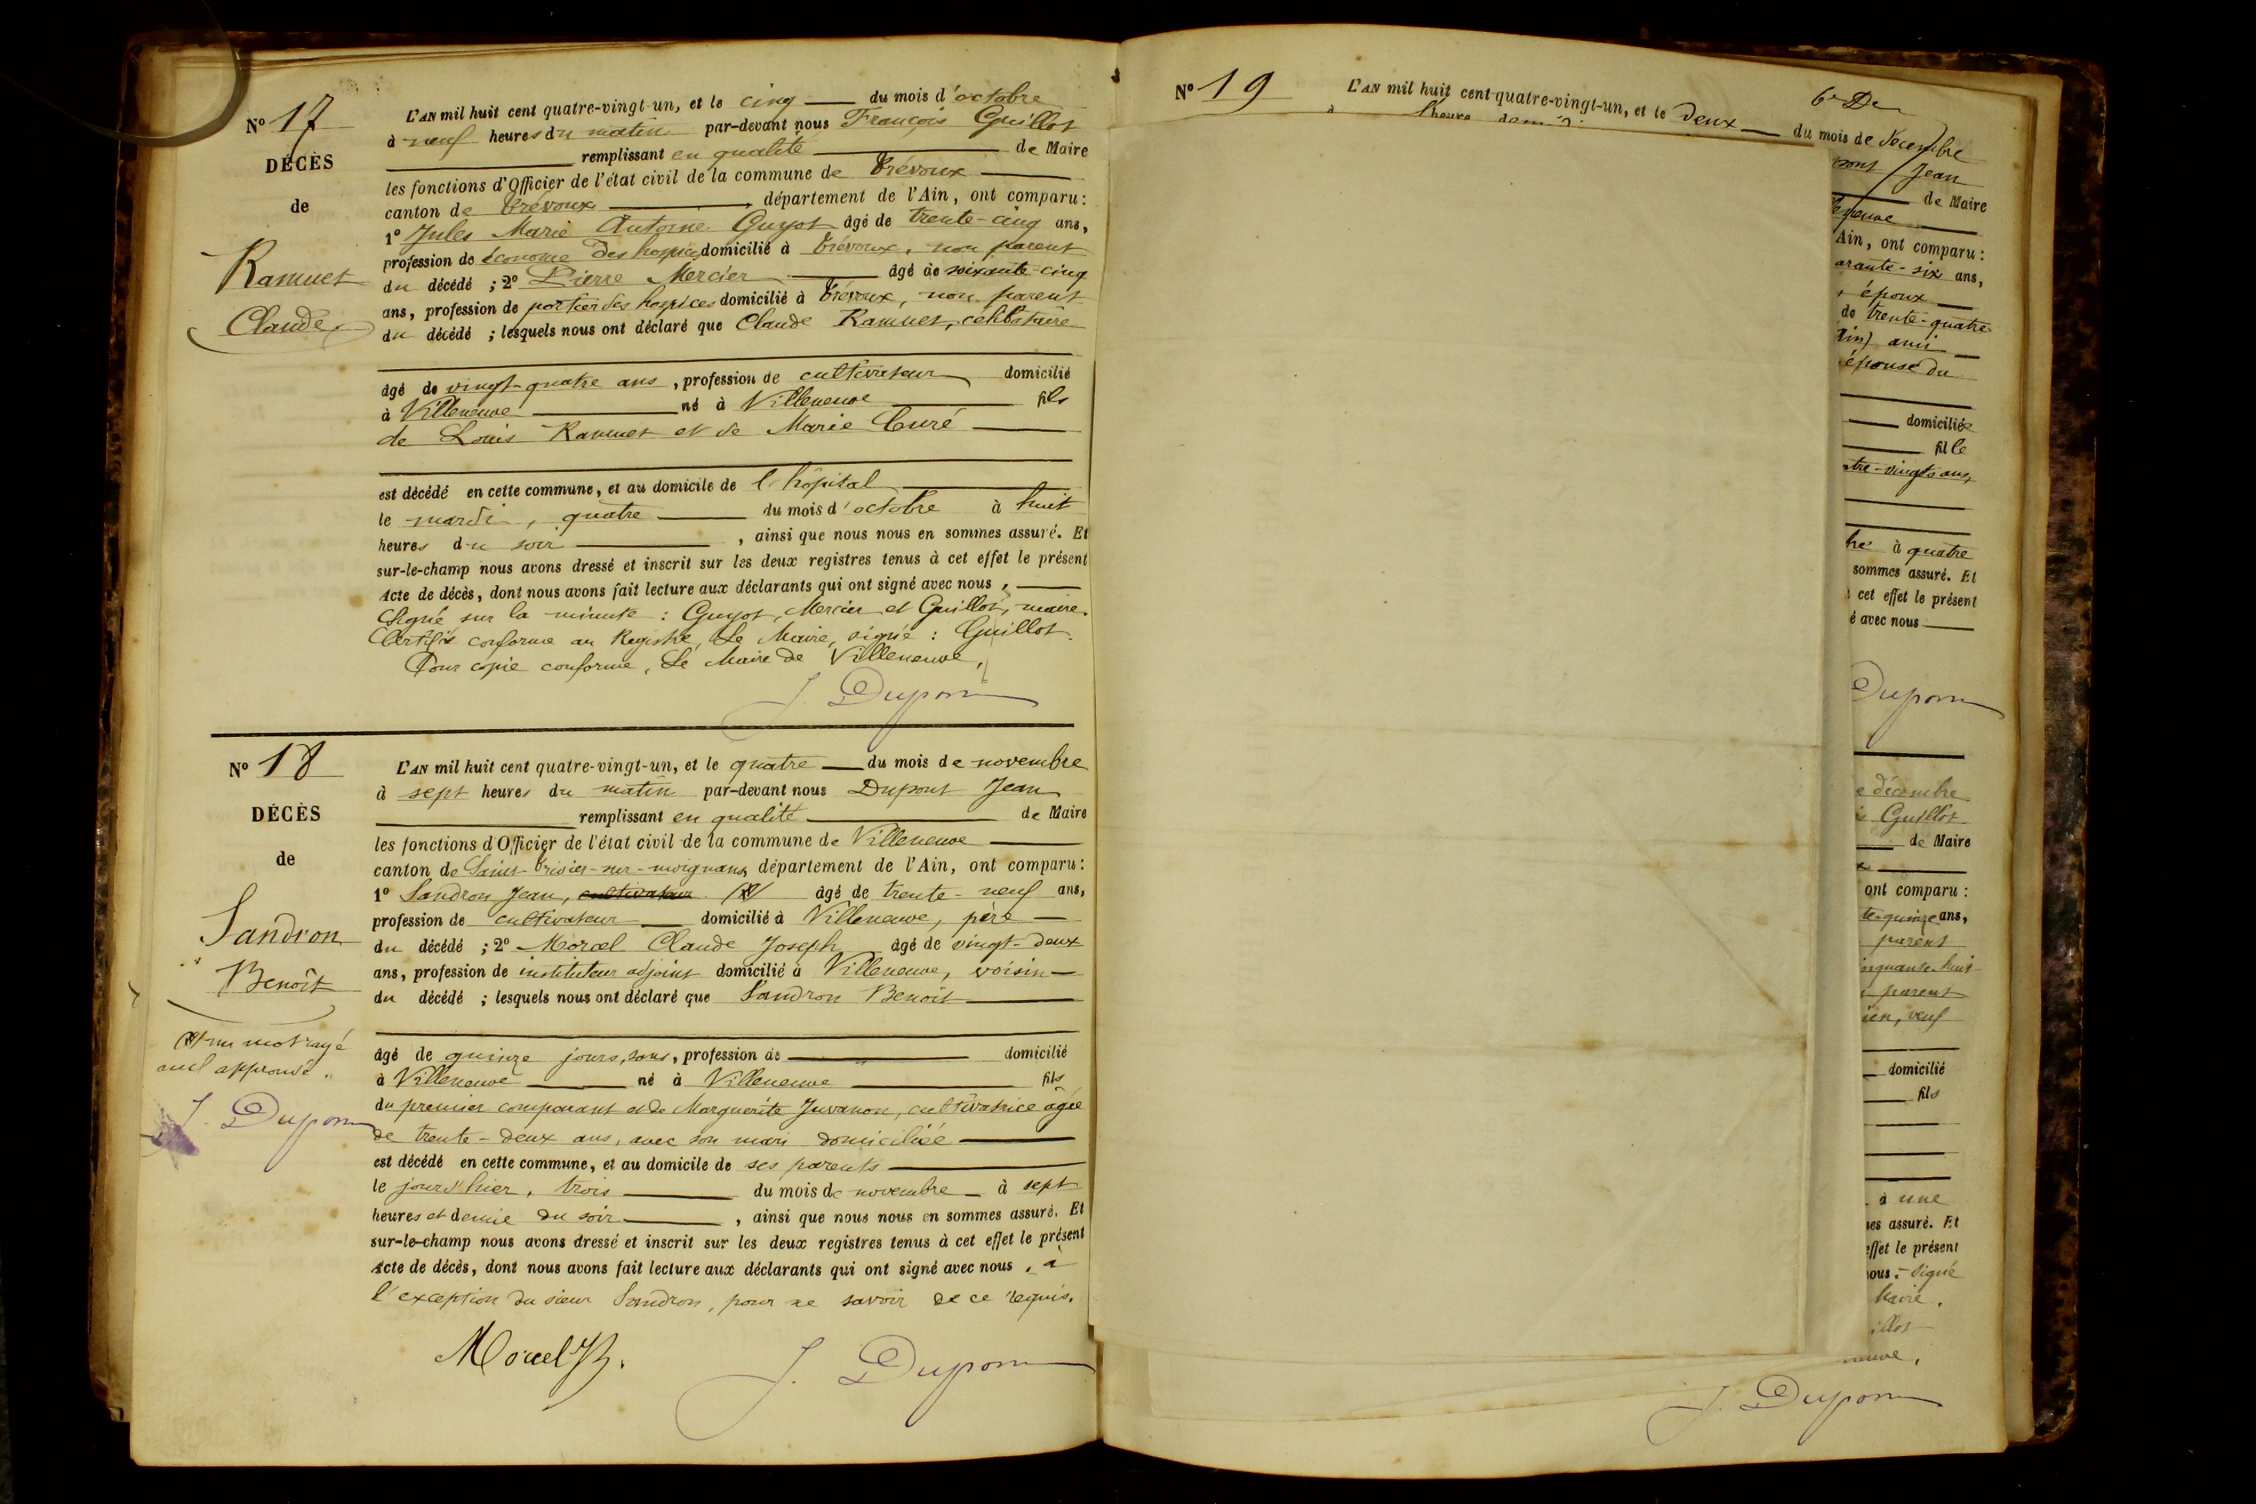 N° 17
DÉCÈS
de
Ramuet
Claude
L'AN mil huit cent quatre-vingt-un, et le cinq du mois d'octobre
à neuf heures du matin par-devant nous François Guillot
remplissant en qualité de Maire
les fonctions d'Officier de l'état civil de la commune de Trévoux
canton de Trévoux, département de l'Ain, ont comparu:
1° Jules Marie Antoine Guyot âgé de trente-cinq ans,
profession de économe des hospices domicilié à Trévoux, non parent
du décédé ; 2° Pierre Mercier âgé de soixante-cinq
ans, profession de portier des hospices domicilié à Trévoux, non parent
du décédé ; lesquels nous ont déclaré que Claude Ramuet, célibataire
âgé de vingt-quatre ans, profession de cultivateur domicilié
à Villeneuve né à Villeneuve fils
de Louis Ramuet et de Marie Curé
est décédé en cette commune, et au domicile de l'hôpital
le mardi, quatre du mois d'octobre à huit
heures du soir, ainsi que nous nous en sommes assuré. Et
sur-le-champ nous avons dressé et inscrit sur les deux registres tenus à cet effet le présent
Acte de décès, dont nous avons fait lecture aux déclarants qui ont signé avec nous,
Signé sur la minute : Guyot, Mercier et Guillot, maire.
Certifié conforme au Registre, Le Maire, signé : Guillot.
Pour copie conforme, Le Maire de Villeneuve,
J. Dupont
N° 18
DÉCÈS
de
Sandron
Benoît
(x) un mot rayé
nul approuvé.
J. Dupont
L'AN mil huit cent quatre-vingt-un, et le quatre du mois de novembre
à sept heures du matin par-devant nous Dupont Jean
remplissant en qualité de Maire
les fonctions d'Officier de l'état civil de la commune de Villeneuve
canton de Saint-Trivier-sur-Moignans, département de l'Ain, ont comparu:
1° Sandron Jean, cultivateur (x) âgé de trente-neuf ans,
profession de cultivateur domicilié à Villeneuve, père
du décédé ; 2° Morel Claude Joseph âgé de vingt-deux
ans, profession de instituteur adjoint domicilié à Villeneuve, voisin
du décédé ; lesquels nous ont déclaré que Sandron Benoît
âgé de quinze jours, sans, profession de domicilié
à Villeneuve né à Villeneuve fils
du premier comparant et de Marguerite Juvanon, cultivatrice âgée
de trente-deux ans, avec son mari domiciliée
est décédé en cette commune, et au domicile de ses parents
le jour d'hier, trois du mois de novembre à sept
heures et demie du soir, ainsi que nous nous en sommes assuré. Et
sur-le-champ nous avons dressé et inscrit sur les deux registres tenus à cet effet le présent
Acte de décès, dont nous avons fait lecture aux déclarants qui ont signé avec nous, à
l'exception du sieur Sandron, pour ne savoir de ce requis.
J. Dupont
N° 19
L'AN mil huit cent quatre-vingt-un, et le deux du mois de décembre
Jean
de Maire
Ain, ont comparu:
arante-six ans,
époux
de trente-quatre
ami
épouse du
domiciliée
fille
tre-vingts ans,
à quatre
sommes assuré. Et
cet effet le présent
é avec nous
Dupont
décembre
Guillot
de Maire
ont comparu :
te-quinze ans,
parent
inquante-huit
parent
ien, veuf
domicilié
fils
à une
mes assuré. Et
effet le présent
nous. Signé
Maire.
illot
neuve,
J. Dupont